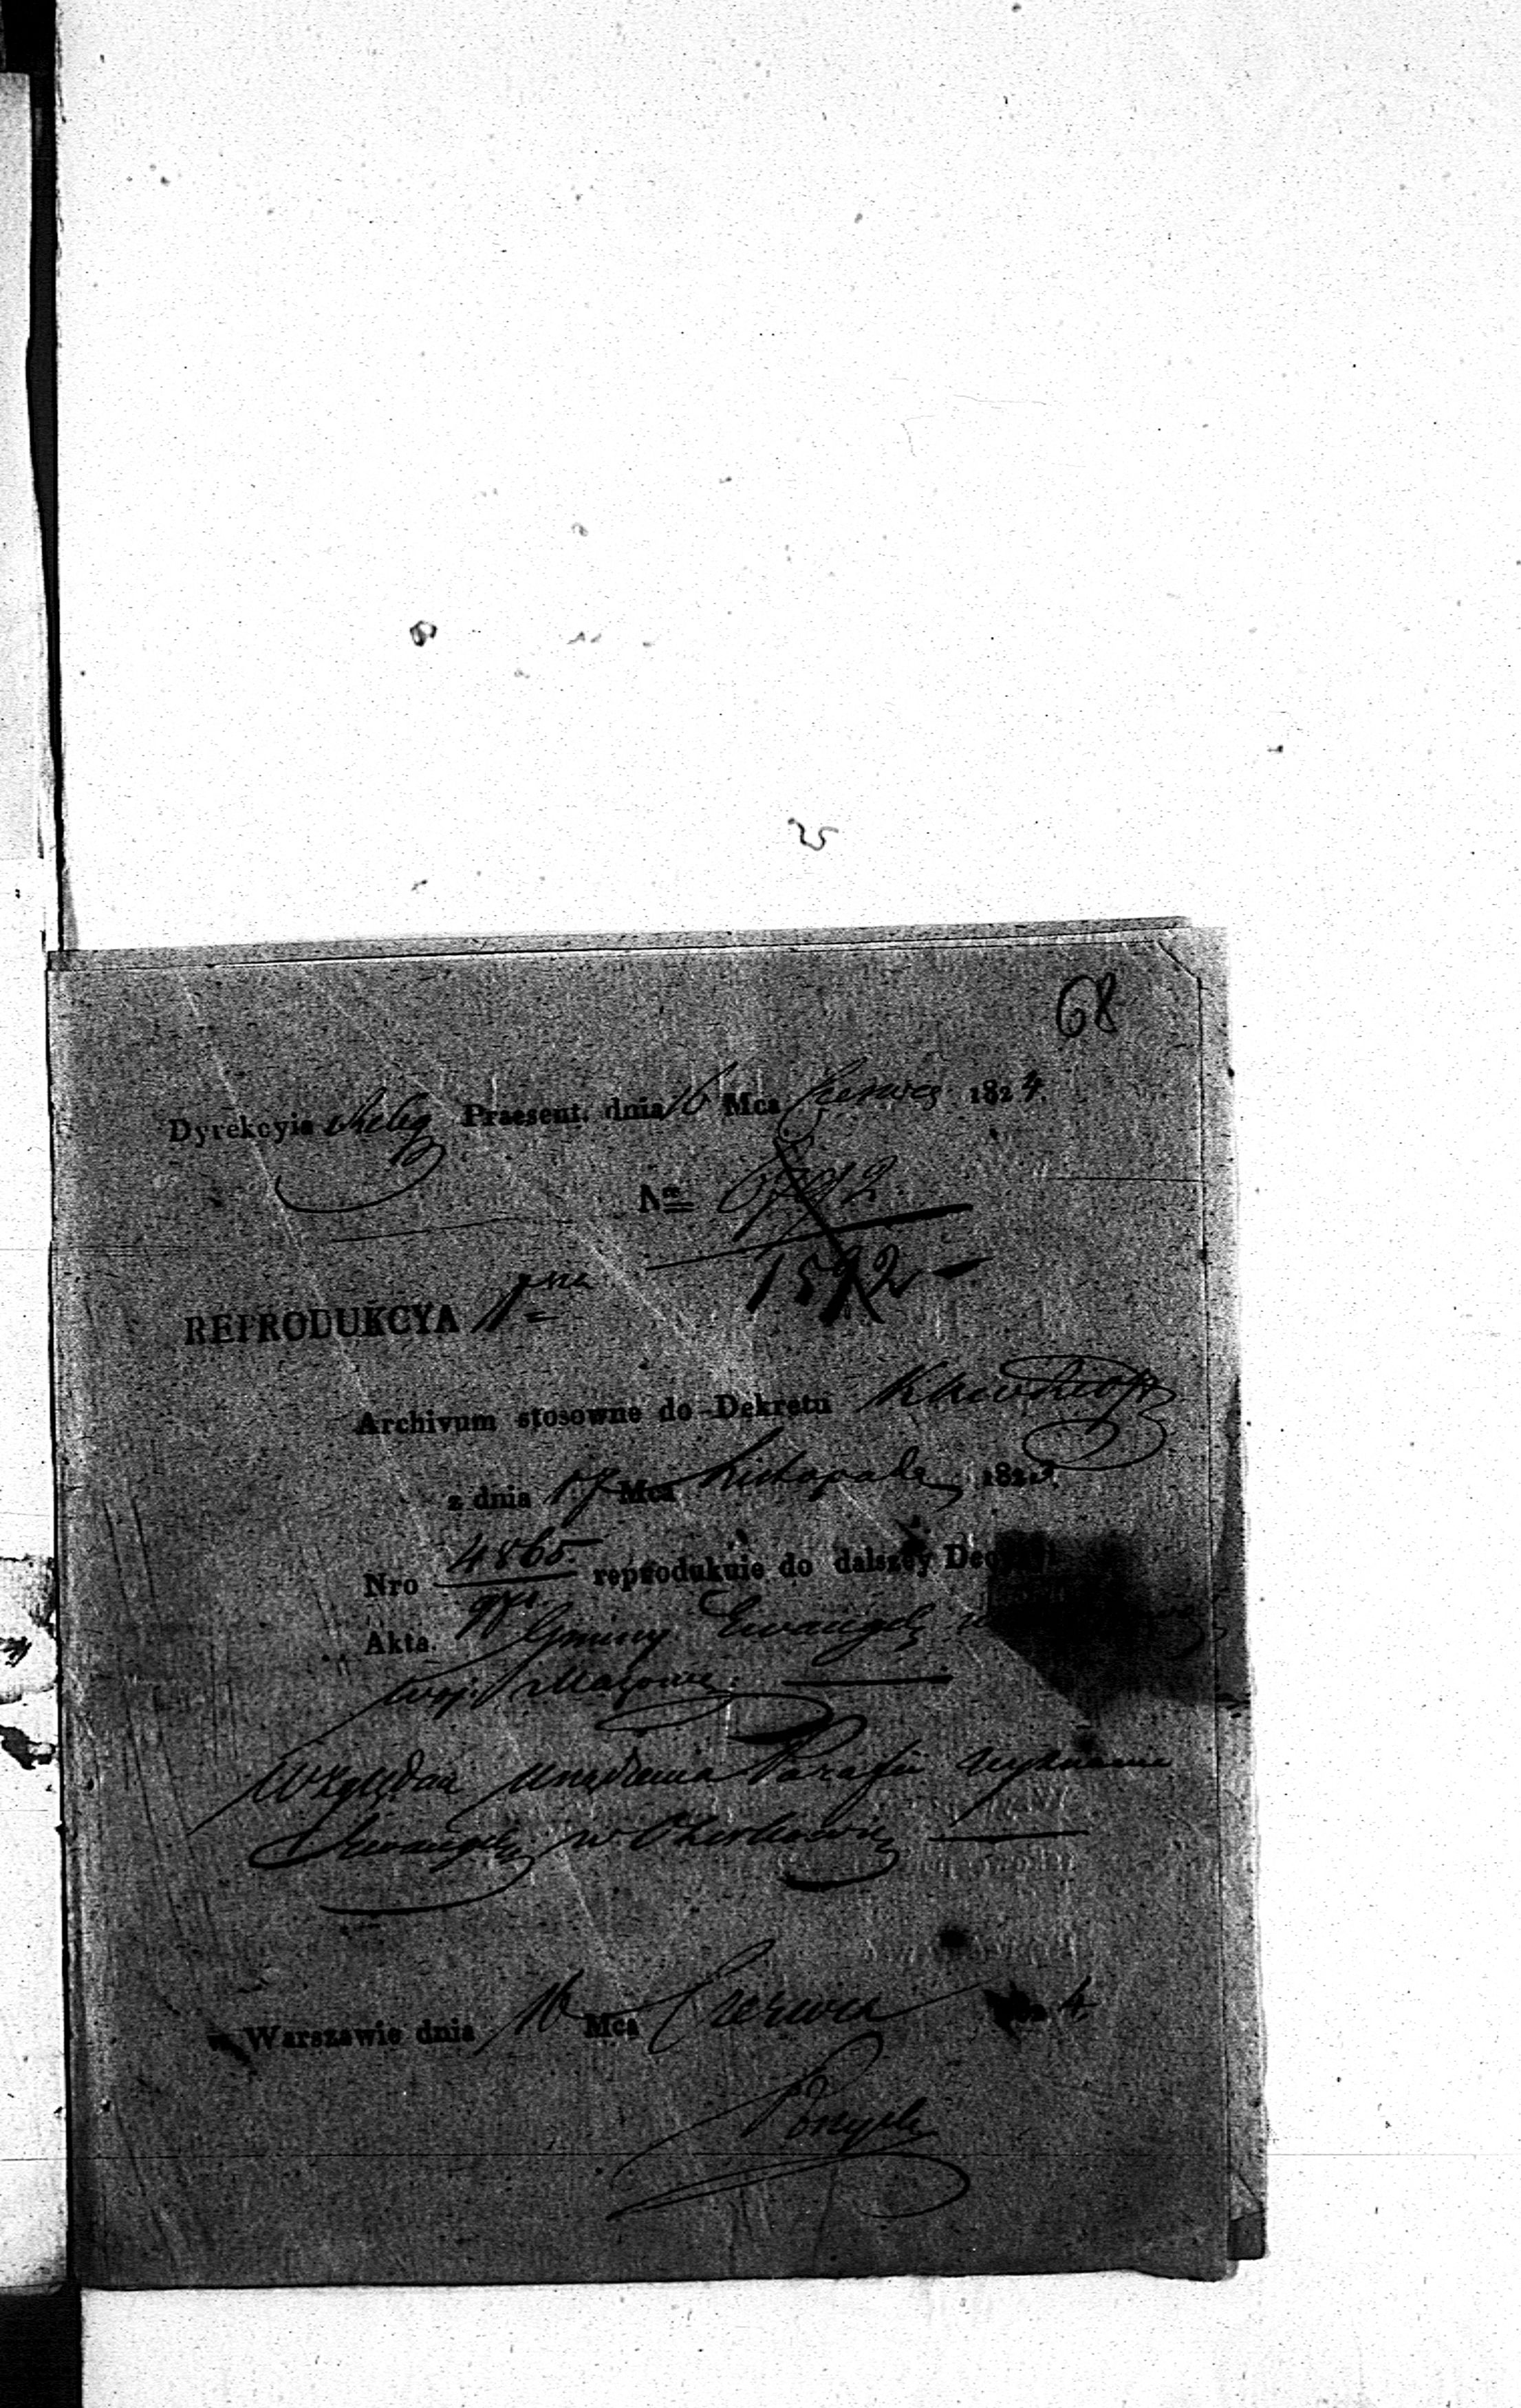 68
Dyrekcyia Relig Praesent. dnia 16 Mca Czerwca 1824.
No 6792
1592
REPRODUKCYA 1
Archivum stosowne do Dekretu
z dnia 17 Mca Listopada 182
Nro 4865 reprodukuie do dalszey
Akta. Gminy Ewangel w
Woj. Mazowie.
Względem urządzenia Parafii wyznania
Ewangel w Ozorkowie
w Warszawie dnia 16 Mca Czerwca 4.